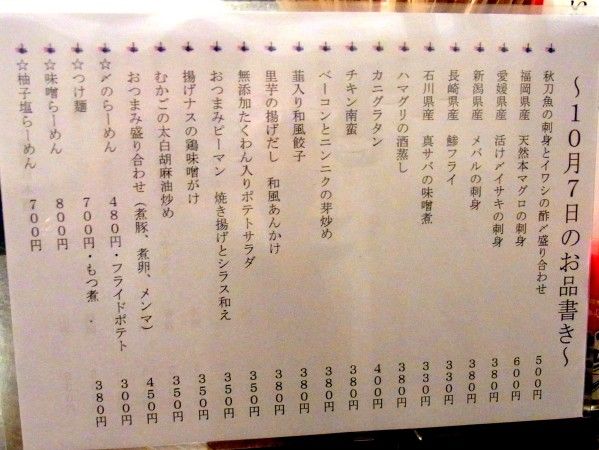 ～１０月７日のお品書き～
秋刀魚の刺身とイワシの酢〆盛り合わせ ５００円
福岡県産 天然本マグロの刺身 ６００円
愛媛県産 活け〆イサキの刺身 ３８０円
新潟県産 メバルの刺身 ３８０円
長崎県産 鯵フライ ３３０円
石川県産 真サバの味噌煮 ３３０円
ハマグリの酒蒸し ３８０円
カニグラタン ４００円
チキン南蛮 ３８０円
ベーコンとニンニクの芽炒め ３８０円
韮入り和風餃子 ３８０円
里芋の揚げだし 和風あんかけ ３８０円
無添加たくわん入りポテトサラダ ３５０円
おつまみピーマン 焼き揚げとシラス和え ３５０円
揚げナスの鶏味噌がけ ３５０円
むかごの太白胡麻油炒め ３５０円
おつまみ盛り合わせ（煮豚、煮卵、メンマ） ４５０円
☆〆のらーめん ４８０円・フライドポテト ３００円
☆つけ麺 ７００円・もつ煮 ３８０円
☆味噌らーめん ８００円
☆柚子塩らーめん ７００円